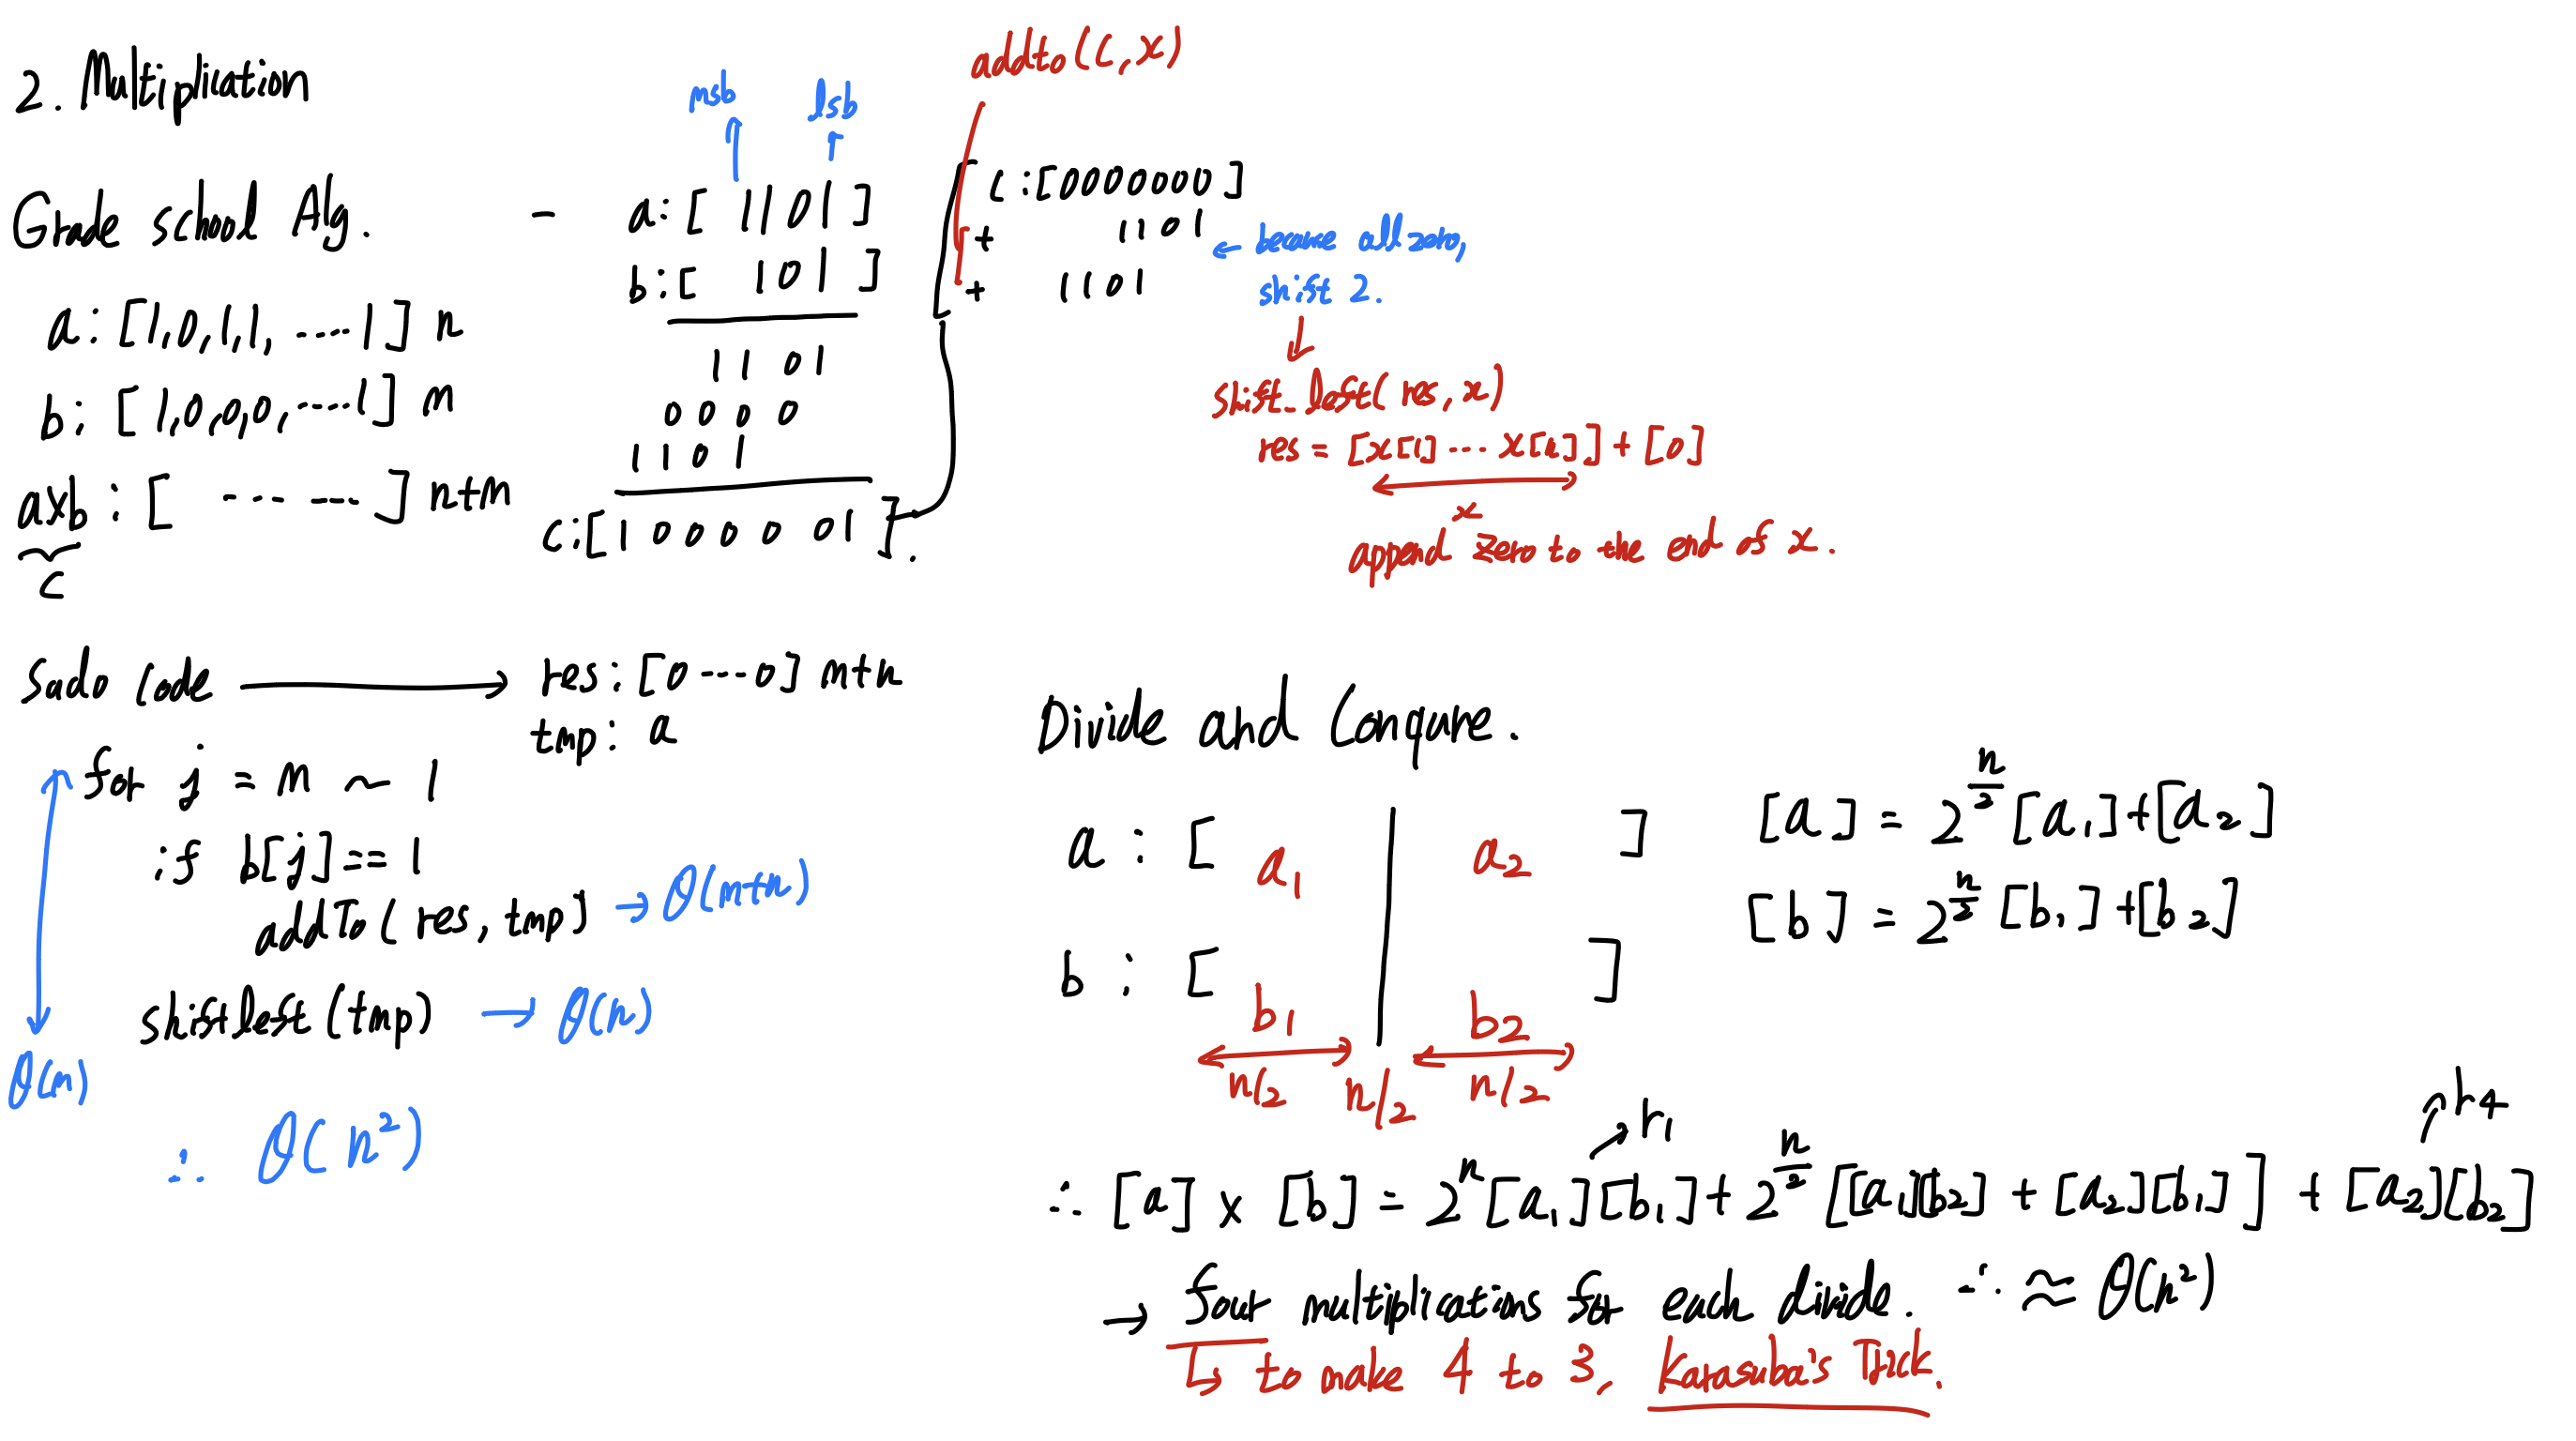 2. Multiplication
Grade school Alg.
a: [1,0,1,1, ....1] n
b: [1,0,0,0, ....1] m
axb : [ .... ....] n+m
c
- a: [ 1101 ]
msb
lsb
b: [ 101 ]
1101
0000
1101
c:[1 0 0 0 0 01 ].
addto(c,x)
c :[0000000]
+ 1101
+ 1101
← because all zero,
shift 2.
shift_left( res, x)
res = [x[1] ... x[n]] + [0]
x
append zero to the end of x.
Sudo Code → res: [0 ---0] m+n
tmp: a
for j = m ~ 1
if b[j] == 1
addTo( res, tmp] → θ(m+n)
shiftleft (tmp) → θ(n)
θ(m)
∴ θ( n²)
Divide and Conqure.
a : [ a₁ | a₂ ]
b : [ b₁ | b₂ ]
n/2 n/2 n/2
[a] = 2^(n/2) [a₁]+[a₂]
[b] = 2^(n/2) [b₁] +[b₂]
r₁
r₄
∴ [a] x [b] = 2ⁿ [a₁][b₁] + 2^(n/2) [[a₁][b₂] + [a₂][b₁]] + [a₂][b₂]
→ four multiplications for each divide. ∴ ≈ θ(n²)
↳ to make 4 to 3, Karasuba's Trick.